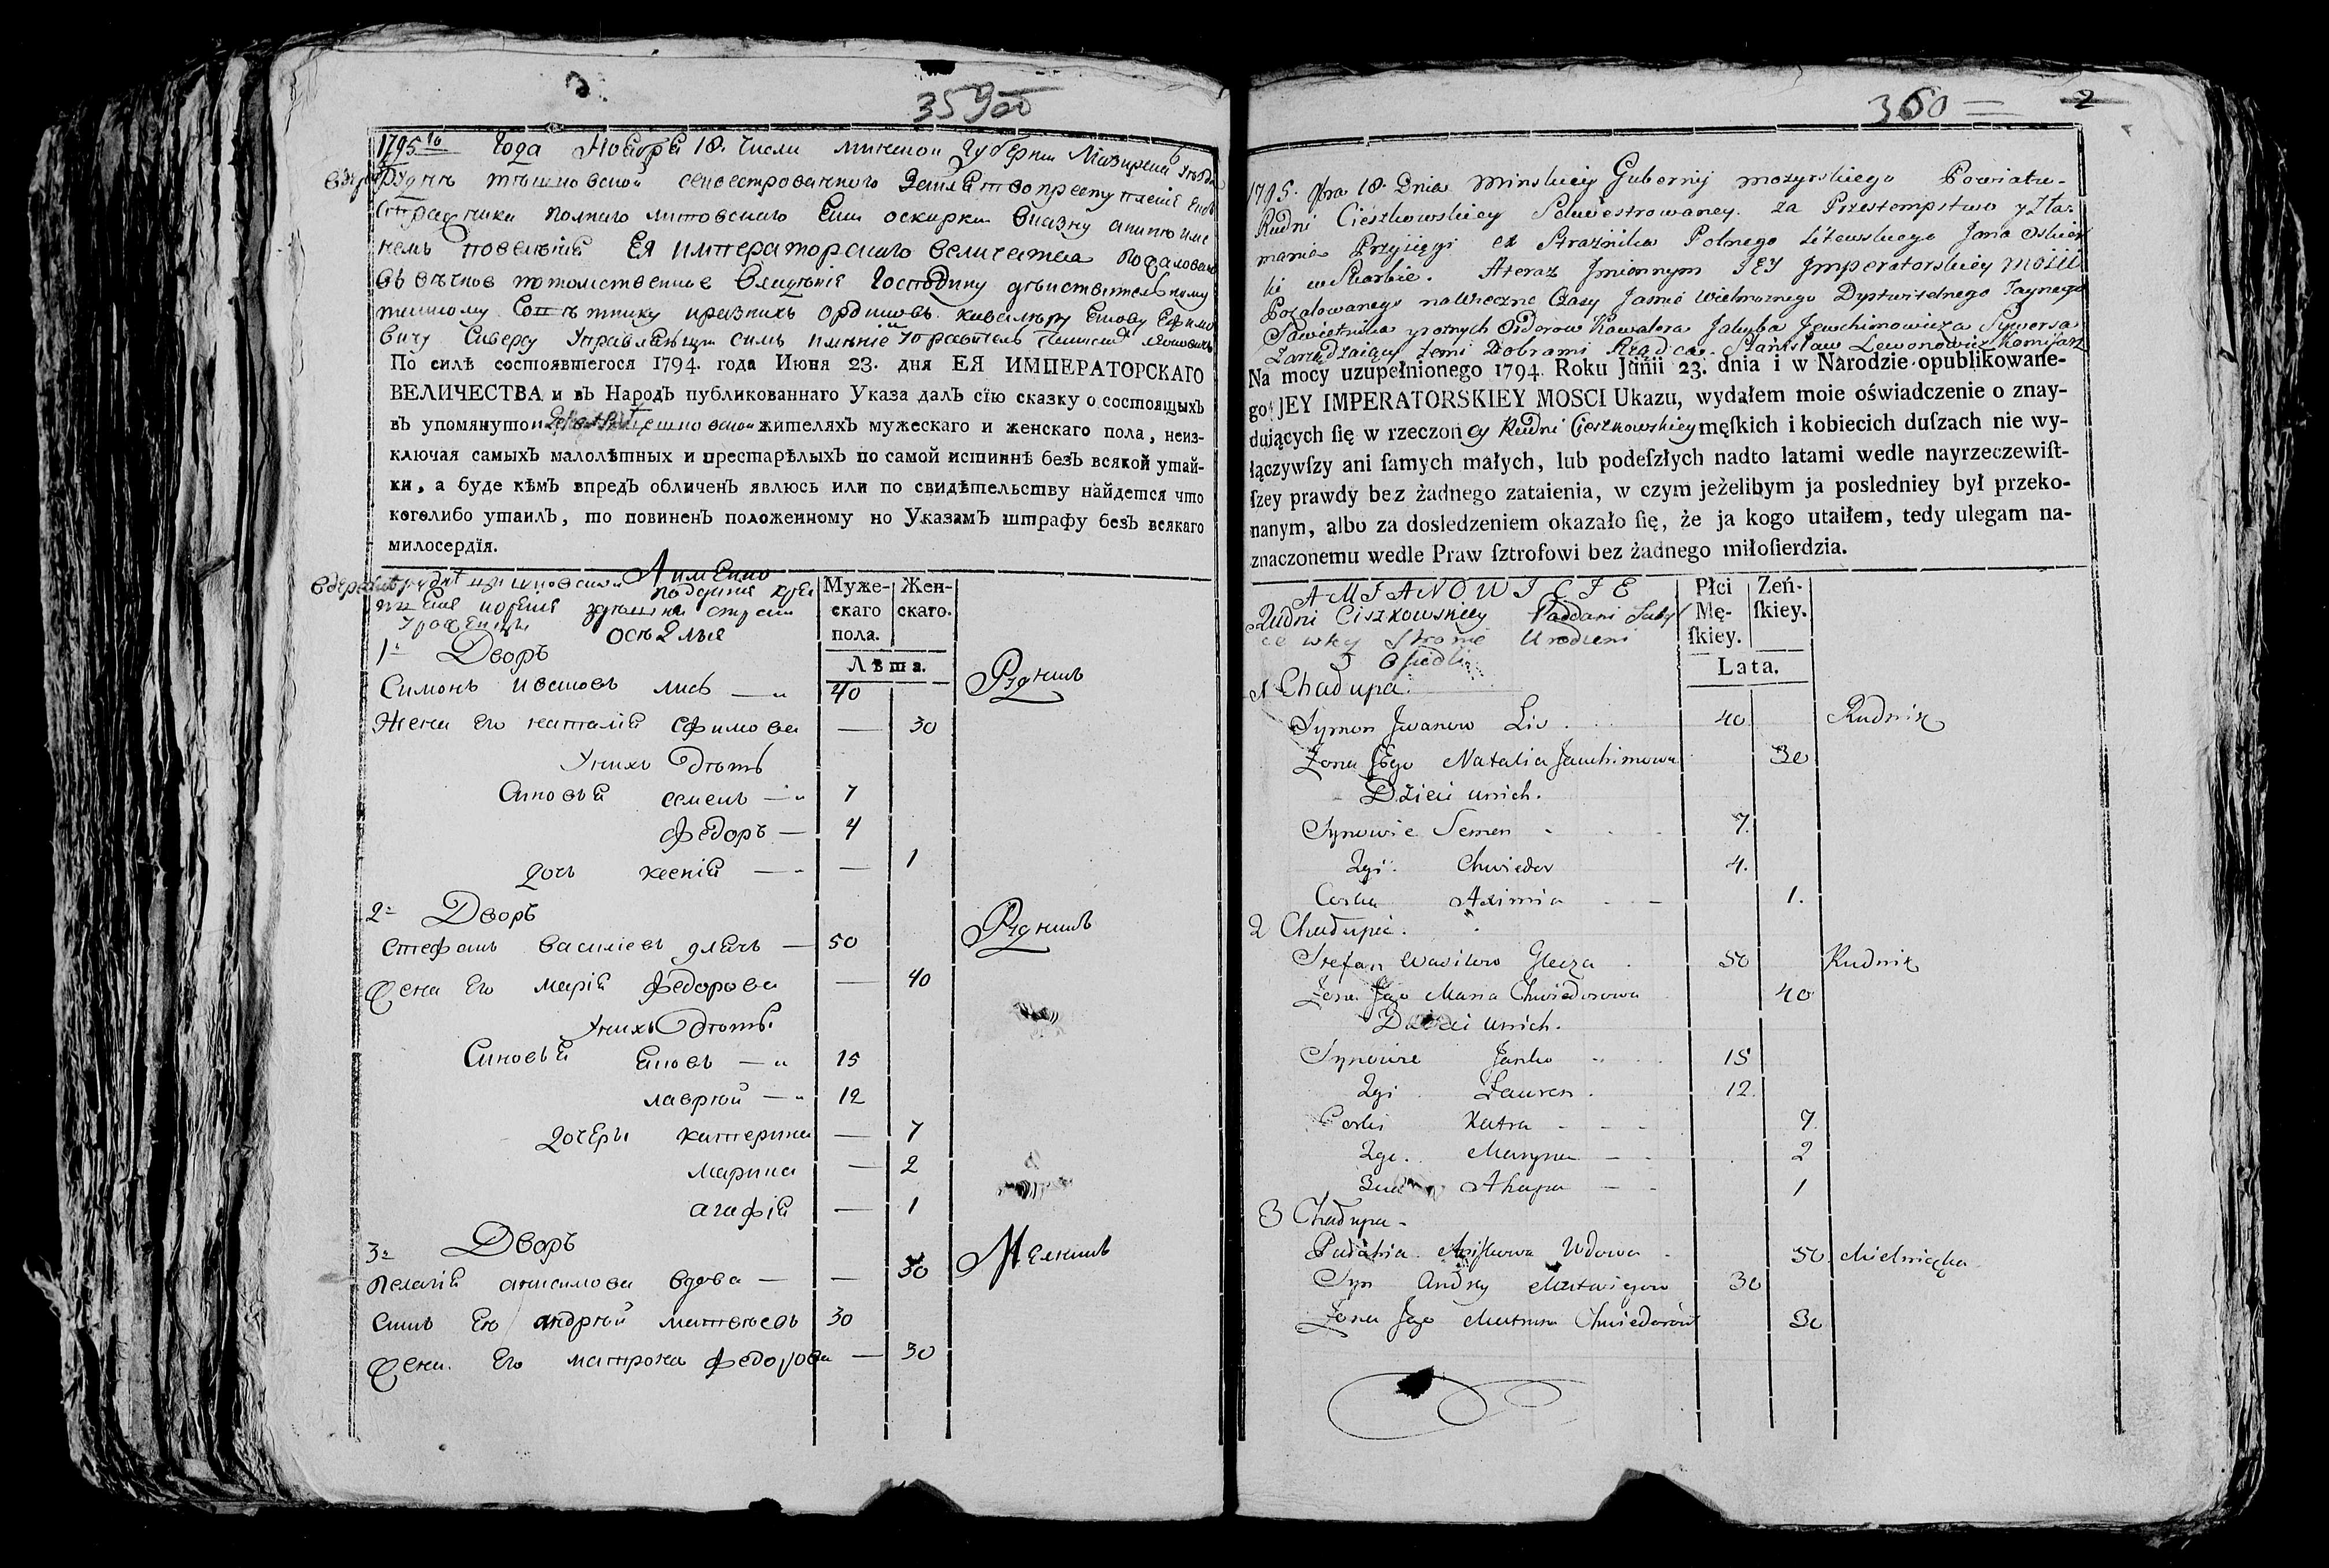 3
35900
1795го Года Ноября 18. Числа минской Губернии Мозырска уезда
секвестрованного За
стражника полнаго литовскаго Яна оскирки вказну аныню име
немъ повеленія ЕЯ императорскаго величества пожалован
въ вѣчное потомственное владѣніе Господину дѣйствительному
тайному Совѣтнику иразныхъ орденовъ кавалеру Якову Ефимо
вичу Сиверсу Управляющи симъ имѣніе
По силѣ состоявшегося 1794. года Июня 23. дня ЕЯ ИМПЕРАТОРСКАГО
ВЕЛИЧЕСТВА и въ НародЪ публикованнаго Указа далЪ сїю сказку о состоящыхЪ
въ упомянутои жителяхЪ мужескаго и женскаго пола, неиз-
ключая самыхЪ малолѣтныхъ и престарѣлыхЪ по самой истиннѣ безЪ всякой утай-
ки, а буде кѣмЪ впредЪ обличенЪ явлюсь или по свидѣтельству найдется что
коголибо утаилЪ, то повиненЪ положенному по УказамЪ штрафу безЪ всякаго
милосердїя.
А имЕнно
Муже-скаго пола. Жен-скаго.
Лѣта.
оседлые
1й Дворъ
Симонъ ивановъ лисъ — 40 Рудникъ
Жена его наталія Ефимова — 30
Унихъ Дѣтъ
Синовья семенъ — 7
федоръ — 4
дочь ксенія — — 1
2й Дворъ
Стефанъ василіевъ — 50 Рудникъ
Жена Его марія федорова — 40
Унихъ Дѣтъ
Синовья Яковъ — 15
лаврѣй — 12
дочЕры катерина — 7
марина — 2
агафія — 1
3й Дворъ
пелагія анисимова вдова — — 50
Синъ Его андрѣй матвѣевъ 30
Жена Его матрона федорова — 30
360 2
1795. 9bra 18. Dnia Minskiey Gubernij mozyrskiego Powiatu
Rudni Cieszkowskiey Sekwestrowaney za Przestempstwo y Zła-
manie Przysięgi ex Strażnika Polnego Litewskiego Jana Oskier
ki w Skarbie. Ateraz Jmiennym JEY Jmperatorskiey MOSCI
Pozalowanego naWieczne Czasy Jasnie Wielmoznego Dystwitelnego Taynego
Sowietnika yroznych Orderow Kawalera Jakuba Jewchimowicza Sywersa
Zarządzaiący temi Dobrami Rządca. Stanisław Lewonowicz Komisarz
Na mocy uzupełnionego 1794. Roku Junii 23. dnia i w Narodzie opublikowane-
go JEY IMPERATORSKIEY MOSCI Ukazu, wydałem moie oświadczenie o znay-
dujących ſię w rzeczon ey Rudni Cieszkowskiey męſkich i kobiecich duſzach nie wy-
łączywſzy ani ſamych małych, lub podeſzłych nadto latami wedle nayrzeczewiſt-
ſzey prawdy bez żadnego zataienia, w czym jeżelibym ja posledniey był przeko-
nanym, albo za dosledzeniem okazało ſię, że ja kogo utaiłem, tedy ulegam na-
znaczonemu wedle Praw ſztrofowi bez żadnego miłoſierdzia.
AMIANOWICIE
Płci Mę-ſkiey. Zeń-ſkiey.
Lata.
Rudni Ciszkowskiey Poddani
Stronie Urodzeni
y Osiedli
1 Chadupa.
Symon Jwanow Lis. 40 Rudnik
Zona Jego Natalia Jauchimowa 30
Dzieci unich.
Synowie Semen 7.
2gi. Chwiedor 4.
Corka Axinia 1.
2 Chadupa.
Stefan Wasilew 50 Rudnik
Zona Jego Maria Chwiedorowa 40
Dzieci unich.
Synowie Janko 15
2gi Lauren. 12.
Corki Katra 7.
2ga. Maryna 2
3cia Ahapa 1
3 Chadupa
Wdowa 50. Mielniczka
Syn Andrey Matwiejow 30
Zona Jego Matruna Chwiedorow 30